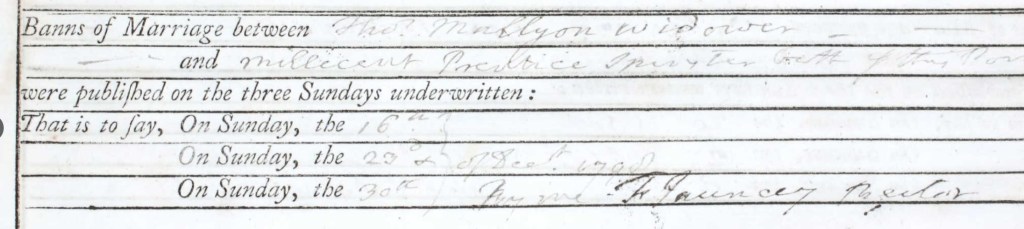 Banns of Marriage between Thos. Mullyon widower
and Millicent Prentice Spinster both of this
were publiſhed on the three Sundays underwritten:
That is to ſay, On Sunday, the 16th
On Sunday, the 23d & of Decr. 1798
On Sunday, the 30th By me F Jauncey Rector